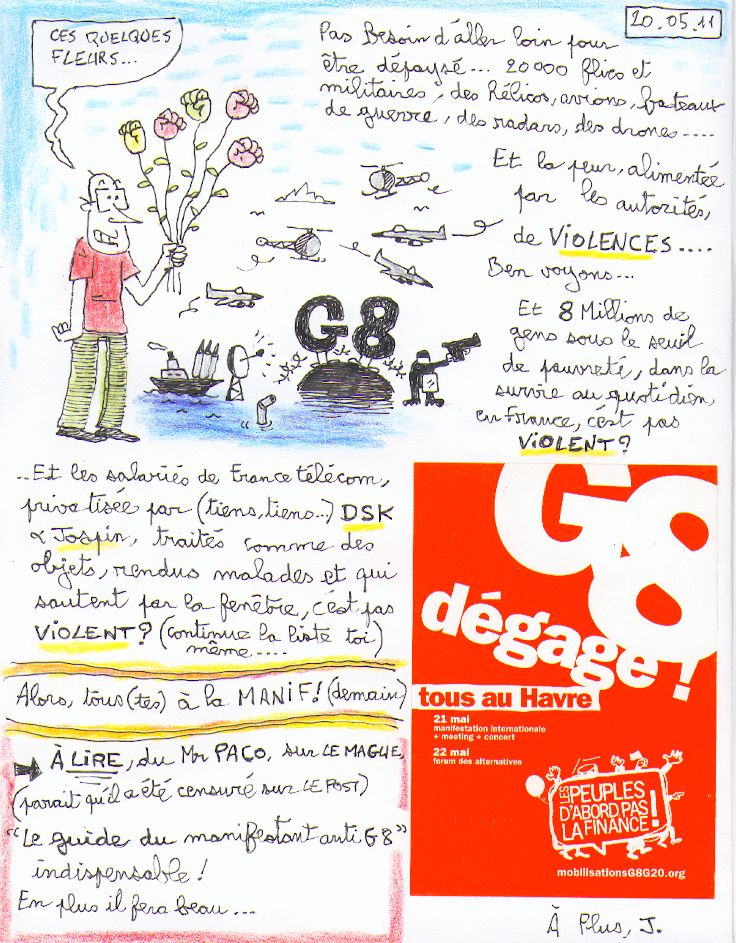 20.05.11
CES QUELQUES
FLEURS...
Pas Besoin d'aller loin pour
être dépaysé... 20000 flics et
militaires, des Hélicos, avions, bateaux
de guerre, des radars, des drones....
Et la peur, alimentée
par les autorités,
de VIOLENCES....
Ben voyons...
Et 8 Millions de
gens sous le seuil
de pauvreté, dans la
survie au quotidien,
en France, c'est pas
VIOLENT?
G8
...Et les salariés de France télécom,
privatisée par (tiens, tiens...) DSK
& Jospin, traités comme des
objets, rendus malades et qui
sautent par la fenêtre, c'est pas
VIOLENT? (continue la liste toi)
même.....
Alors, tous(tes) à la MANIF! (demain)
À LIRE, du Mr PACO, sur LE MAGUE,
(parait qu'il a été censuré sur LE POST)
"Le guide du manifestant anti G8"
indispensable!
En plus il fera beau...
G8
dégage !
tous au Havre
21 mai
manifestation internationale
+ meeting + concert
22 mai
forum des alternatives
LES PEUPLES
D'ABORD PAS
LA FINANCE!
mobilisationsG8G20.org
À Plus, J.